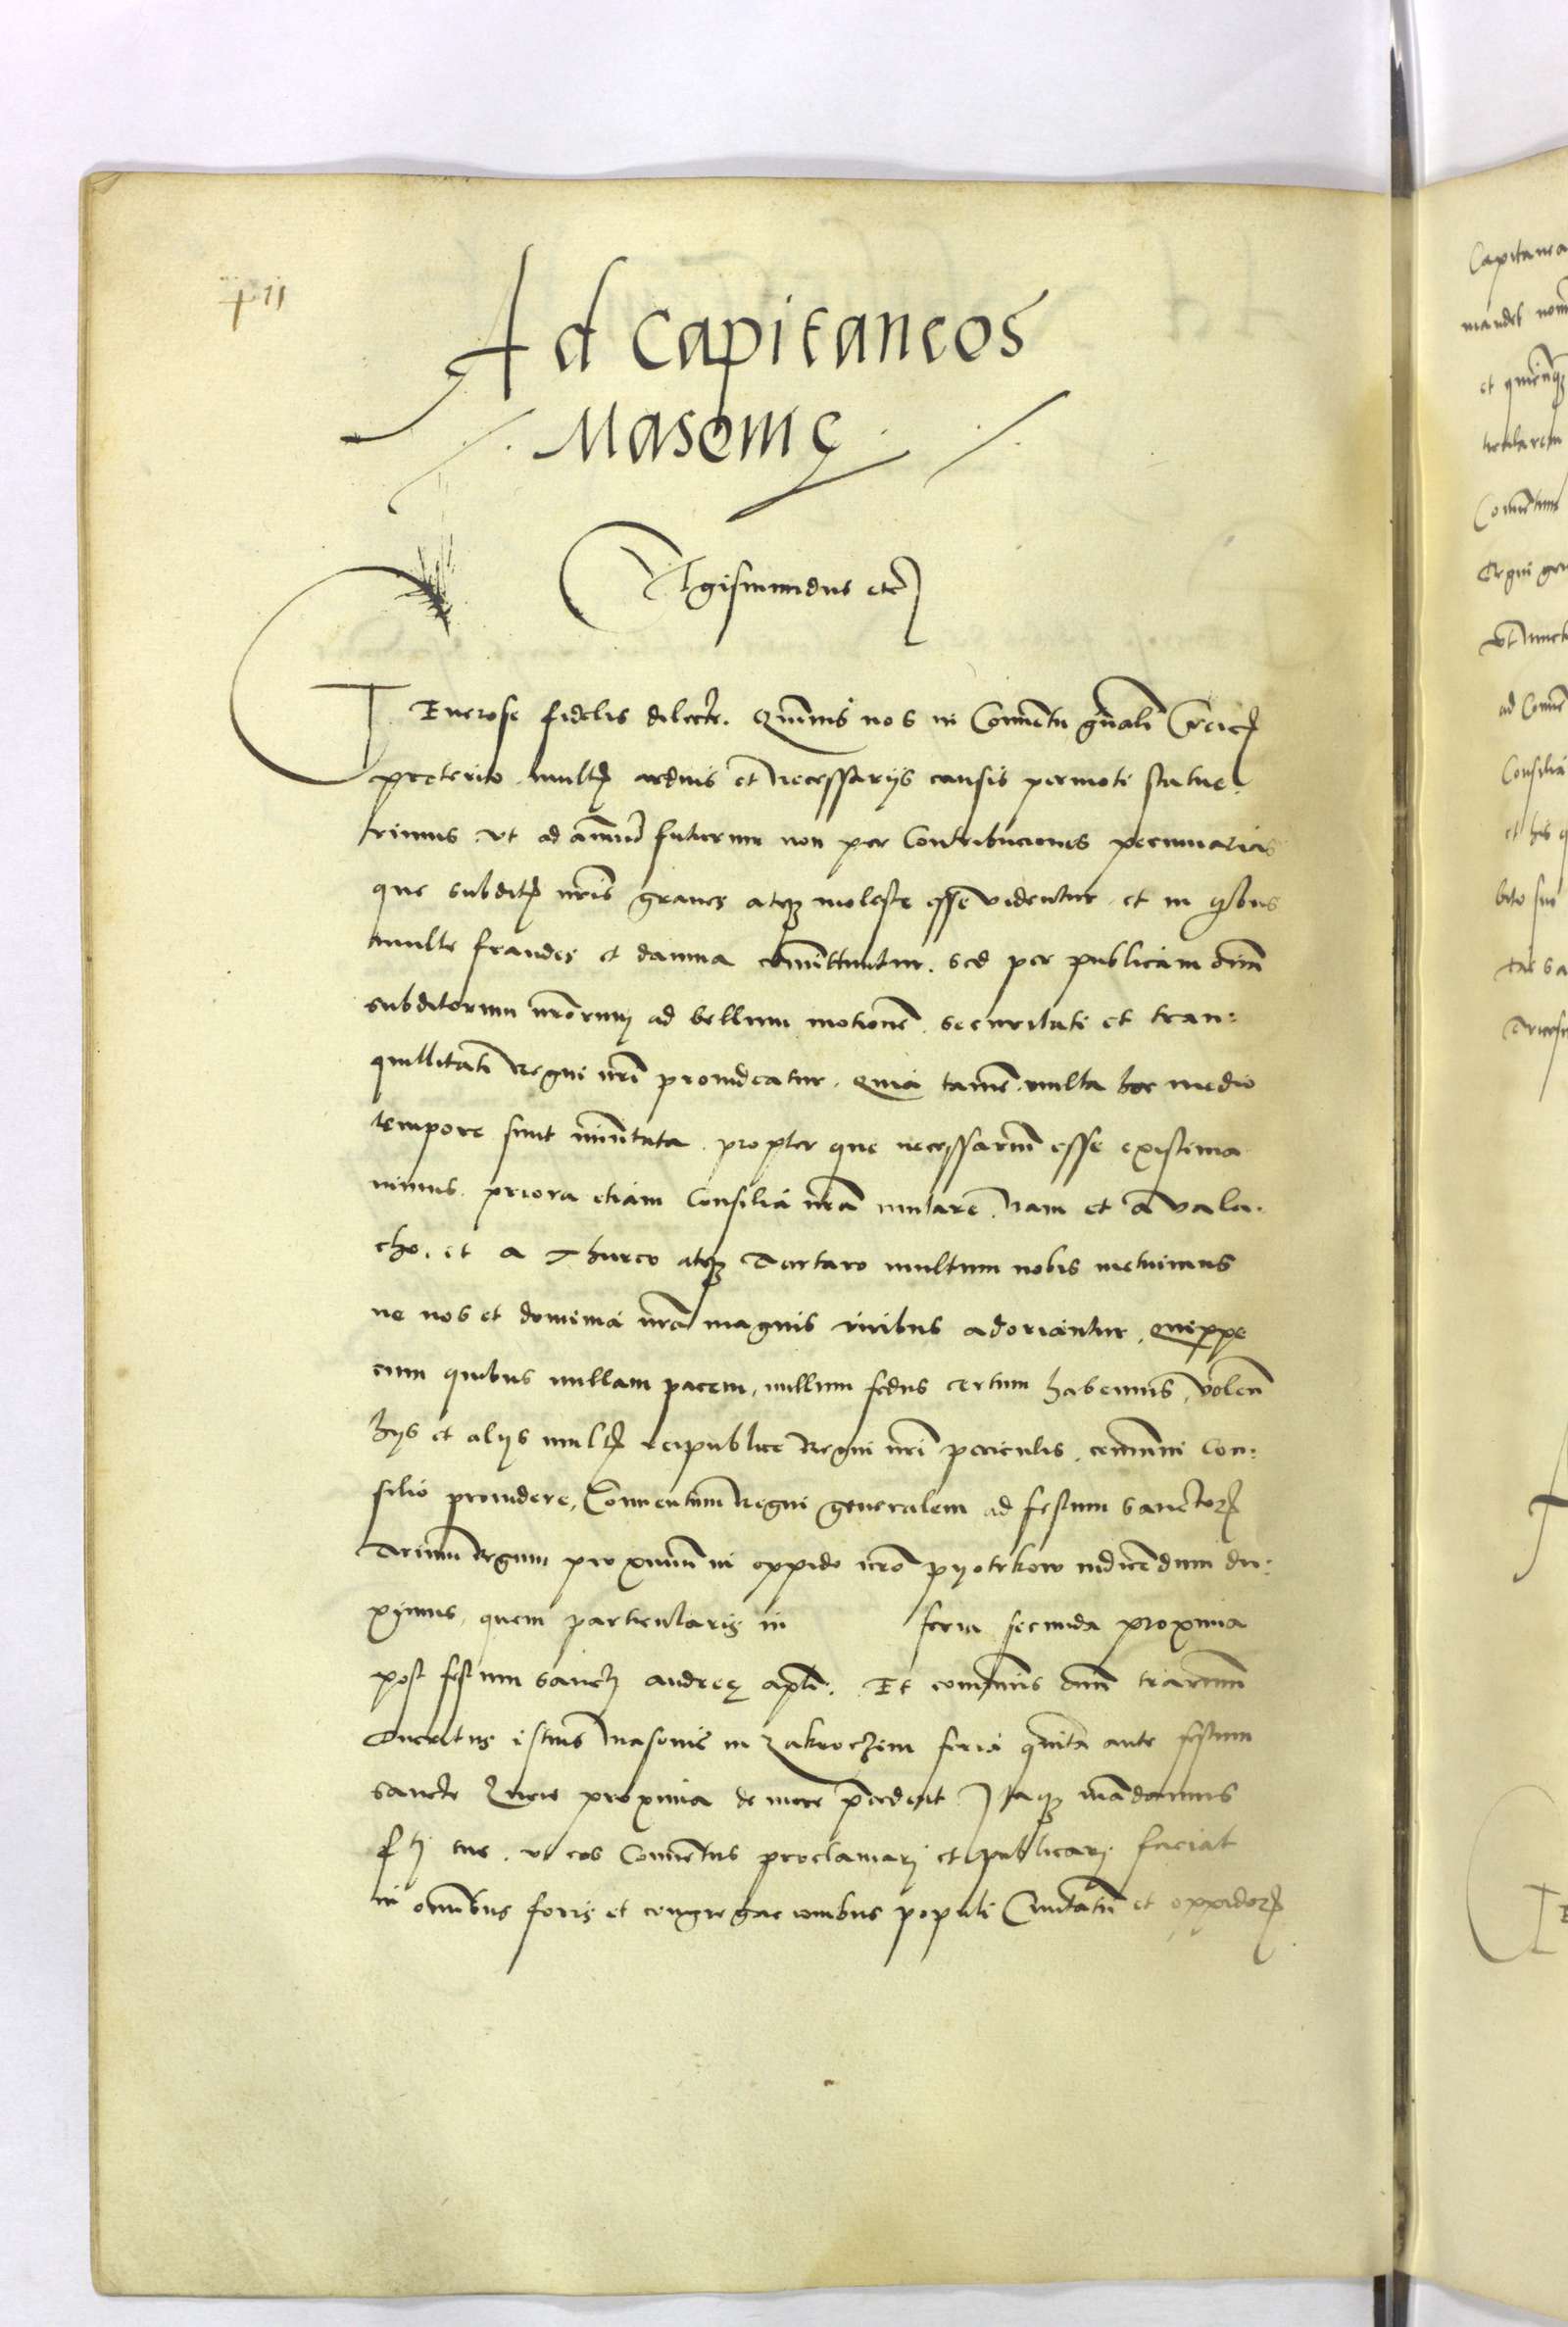 Ad Capitaneos
Masovie
Sigismundus etc
Generose fidelis dilecte. Quamvis nos in Conventu gnali Crac
preterito multis arduis et necessarijs causis permoti statue
rimus ut ad annum futurum non per Contribuciones pecuniarias
que subditis nris graves atq moleste esse videntur et in quibus
multe fraudes et damna committuntur. sed per publicam omn
subditorum nrorum ad bellum motione. securitati et tran:
quillitati Regni nri provideatur. Quia tamen multa hoc medio
tempore sunt immutata. propter que necessarium esse existima
vimus. priora etiam Consilia nra mutare. Nam et a vala
cho. et a Thurco atq Tartaro multum nobis metuimus
ne nos et dominia nra magnis viribus adoriantur. quippe
cum quibus nullam pacem, nullum fedus certum habemus, volen
hijs et alijs multis reipublice Regni nri periculis, communi con:
silio providere, Conventum Regni generalem ad festum sanctor
trium Regum proximum in oppido nro pyotrkow indicendum du:
ximus, quem particularis in feria secunda proxima
post festum sancti andree apli. Et communis omnium terrarum
Ducatus istius Masovie in Zakroczim feria quinta ante festum
sancte Lucie proxima de more precedent. Itaq mandamus
f ti tue. ut eos Conventus proclamari et publicari faciat
in omnibus foris et congregacionibus populi Civitatum et oppidor
Capitanea
mandet
et
ticularem
Conventum
Regni gen
ut
ad Conve
Consilia
et his q